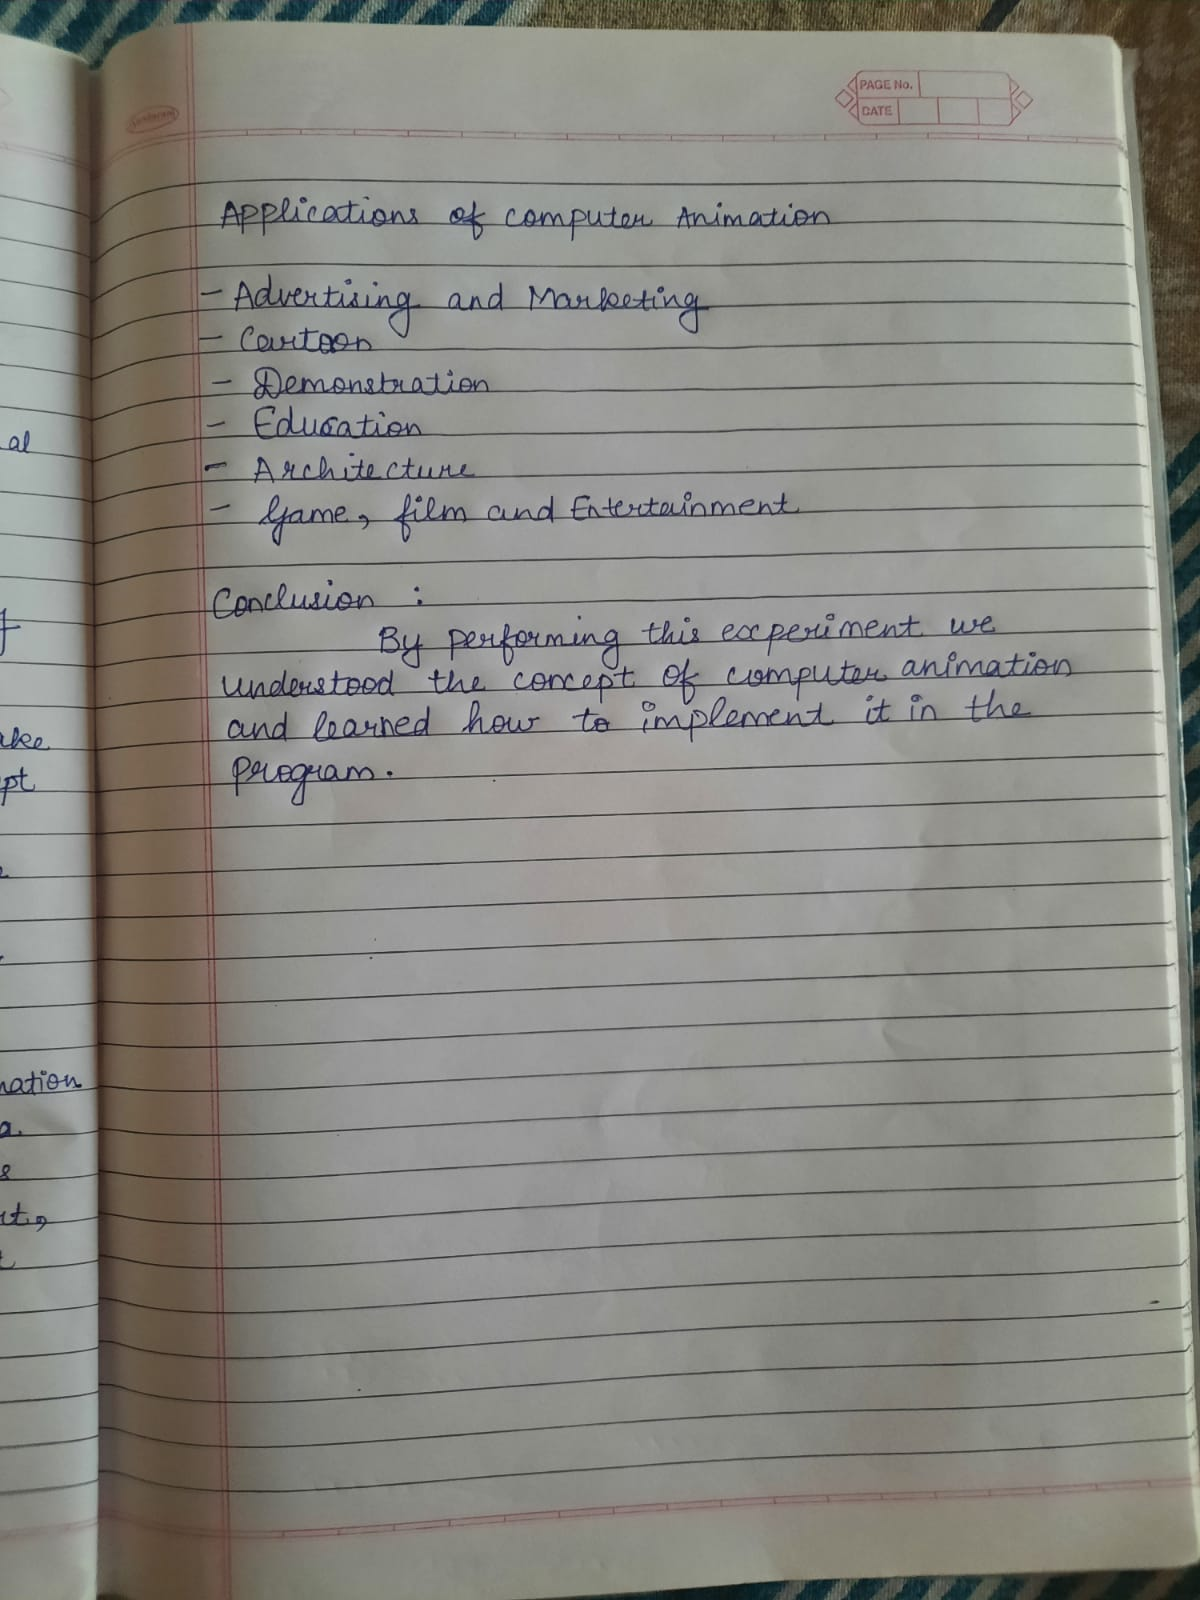 al
ake
pt
nation
a.
Sundaram
PAGE No.
DATE
Applications of computer Animation
- Advertising and Marketing
- Cartoon
- Demonstration
- Education
- Architecture
- Game, film and Entertainment
Conclusion :
By performing this experiment we
understood the concept of computer animation
and learned how to implement it in the
program.